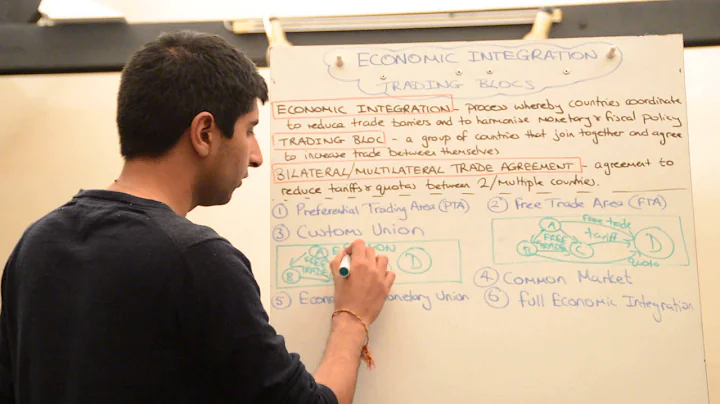 ECONOMIC INTEGRATION
TRADING BLOCS
ECONOMIC INTEGRATION - process whereby countries coordinate
to reduce trade barriers and to harmonise monetary & fiscal policy
TRADING BLOC - a group of countries that join together and agree
to increase trade between themselves
BILATERAL/MULTILATERAL TRADE AGREEMENT - agreement to
reduce tariffs & quotas between 2/multiple countries.
① Preferential Trading Area (PTA)
② Free Trade Area (FTA)
Free trade
A
tariff
FREE
TRADE
C
D
Quota
③ Customs Union
A
B
FREE
TRADE
D
④ Common Market
⑤ Monetary Union
⑥ Full Economic Integration